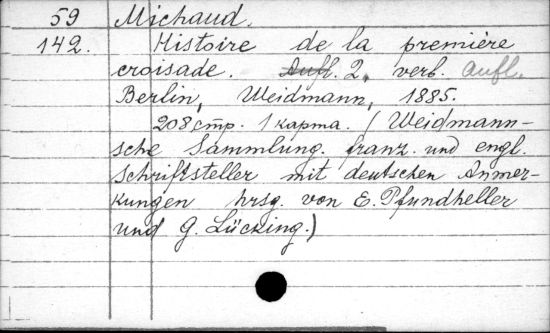 59 Michaud.
142. Histoire de la première
croisade. Aufl. 2, verb. Aufl.
Berlin, Weidmann, 1885.
208 стр. 1 карта. (Weidmann-
sche Sammlung. franz. und engl.
Schriftsteller mit deutschen Anmer-
kungen hrsg. von E. Pfundheller
und G. Lücking.)